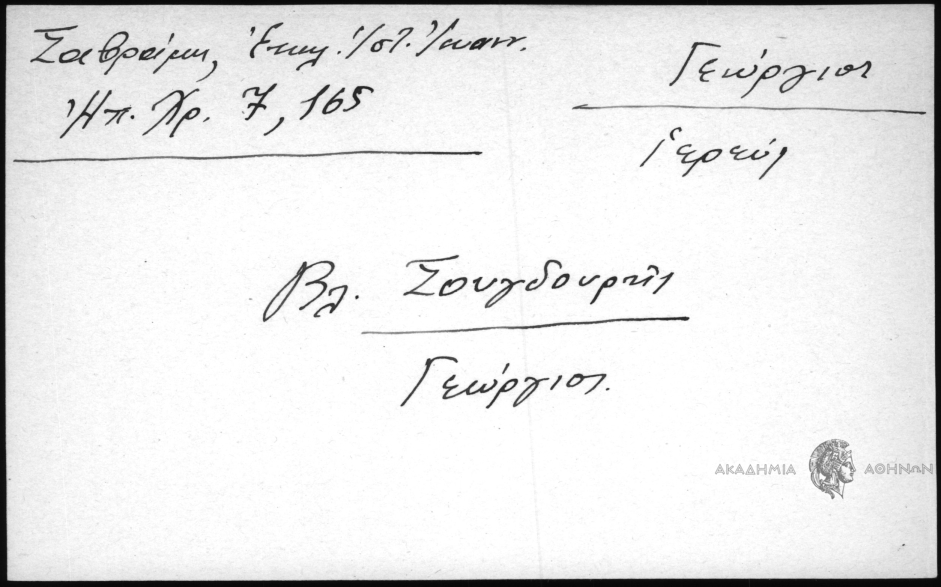 Σαβράμη, Ἐκκλ. Ἱστ. Ἰωαν.
Ἠπ. Χρ. 7, 165
Γεώργιος
Ἱερεύς
Βλ. Σουγδουρῆς
Γεώργιος.
ΑΚΑΔΗΜΙΑ ΑΘΗΝΩΝ